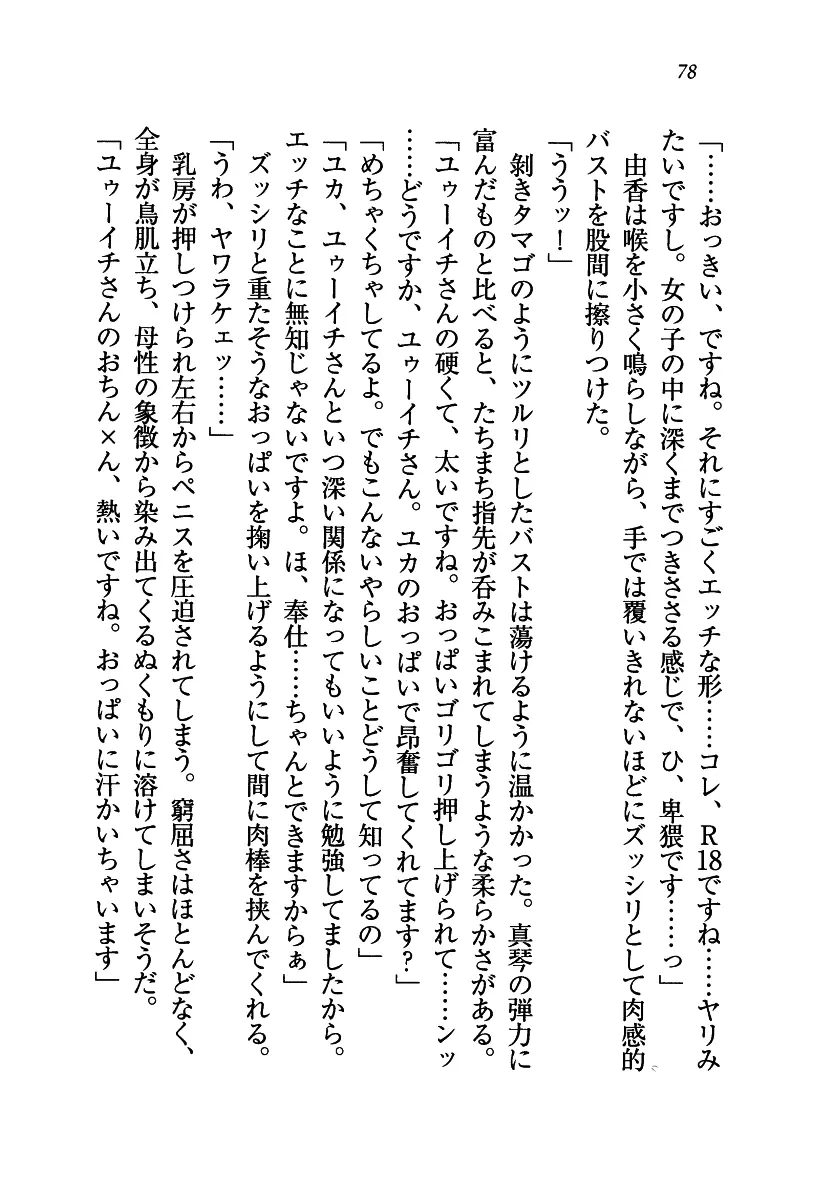 78
「……おっきい、ですね。それにすごくエッチな形……コレ、R18ですね……ヤリみ
たいですし。女の子の中に深くまでつきささる感じで、ひ、卑猥です……っ」
由香は喉を小さく鳴らしながら、手では覆いきれないほどにズッシリとして肉感的
バストを股間に擦りつけた。
「ううッ！」
剥きタマゴのようにツルリとしたバストは蕩けるように温かかった。真琴の弾力に
富んだものと比べると、たちまち指先が呑みこまれてしまうような柔らかさがある。
「ユゥーイチさんの硬くて、太いですね。おっぱいゴリゴリ押し上げられて……ンッ
……どうですか、ユゥーイチさん。ユカのおっぱいで昂奮してくれてます？」
「めちゃくちゃしてるよ。でもこんないやらしいことどうして知ってるの」
「ユカ、ユゥーイチさんといつ深い関係になってもいいように勉強してましたから。
エッチなことに無知じゃないですよ。ほ、奉仕……ちゃんとできますからぁ」
ズッシリと重たそうなおっぱいを掬い上げるようにして間に肉棒を挟んでくれる。
「うわ、ヤワラケェッ……」
乳房が押しつけられ左右からペニスを圧迫されてしまう。窮屈さはほとんどなく、
全身が鳥肌立ち、母性の象徴から染み出てくるぬくもりに溶けてしまいそうだ。
「ユゥーイチさんのおちん×ん、熱いですね。おっぱいに汗かいちゃいます」